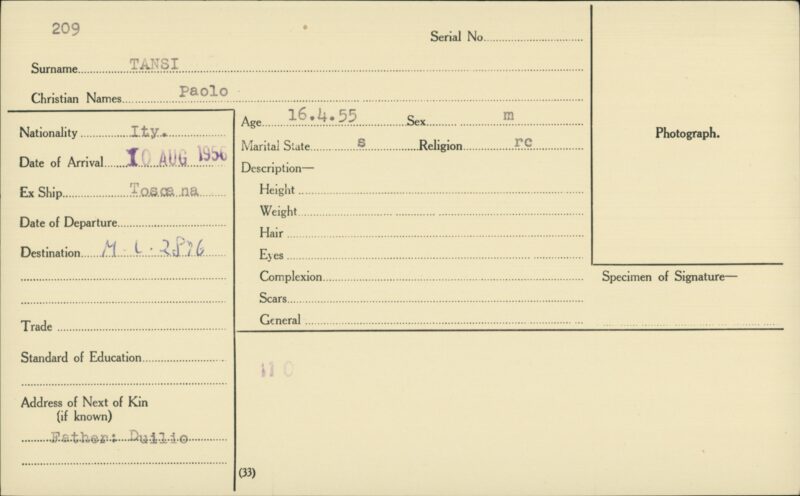 209
Serial No.
Surname TANSI
Christian Names Paolo
Nationality Ity.
Date of Arrival 10 AUG 1956
Ex Ship Toscana
Date of Departure
Destination M.L. 2876
Trade
Standard of Education
Address of Next of Kin
(if known)
Father: Duilio
Age 16.4.55 Sex m
Marital State s Religion rc
Description—
Height
Weight
Hair
Eyes
Complexion
Scars
General
110
(33)
Photograph.
Specimen of Signature—